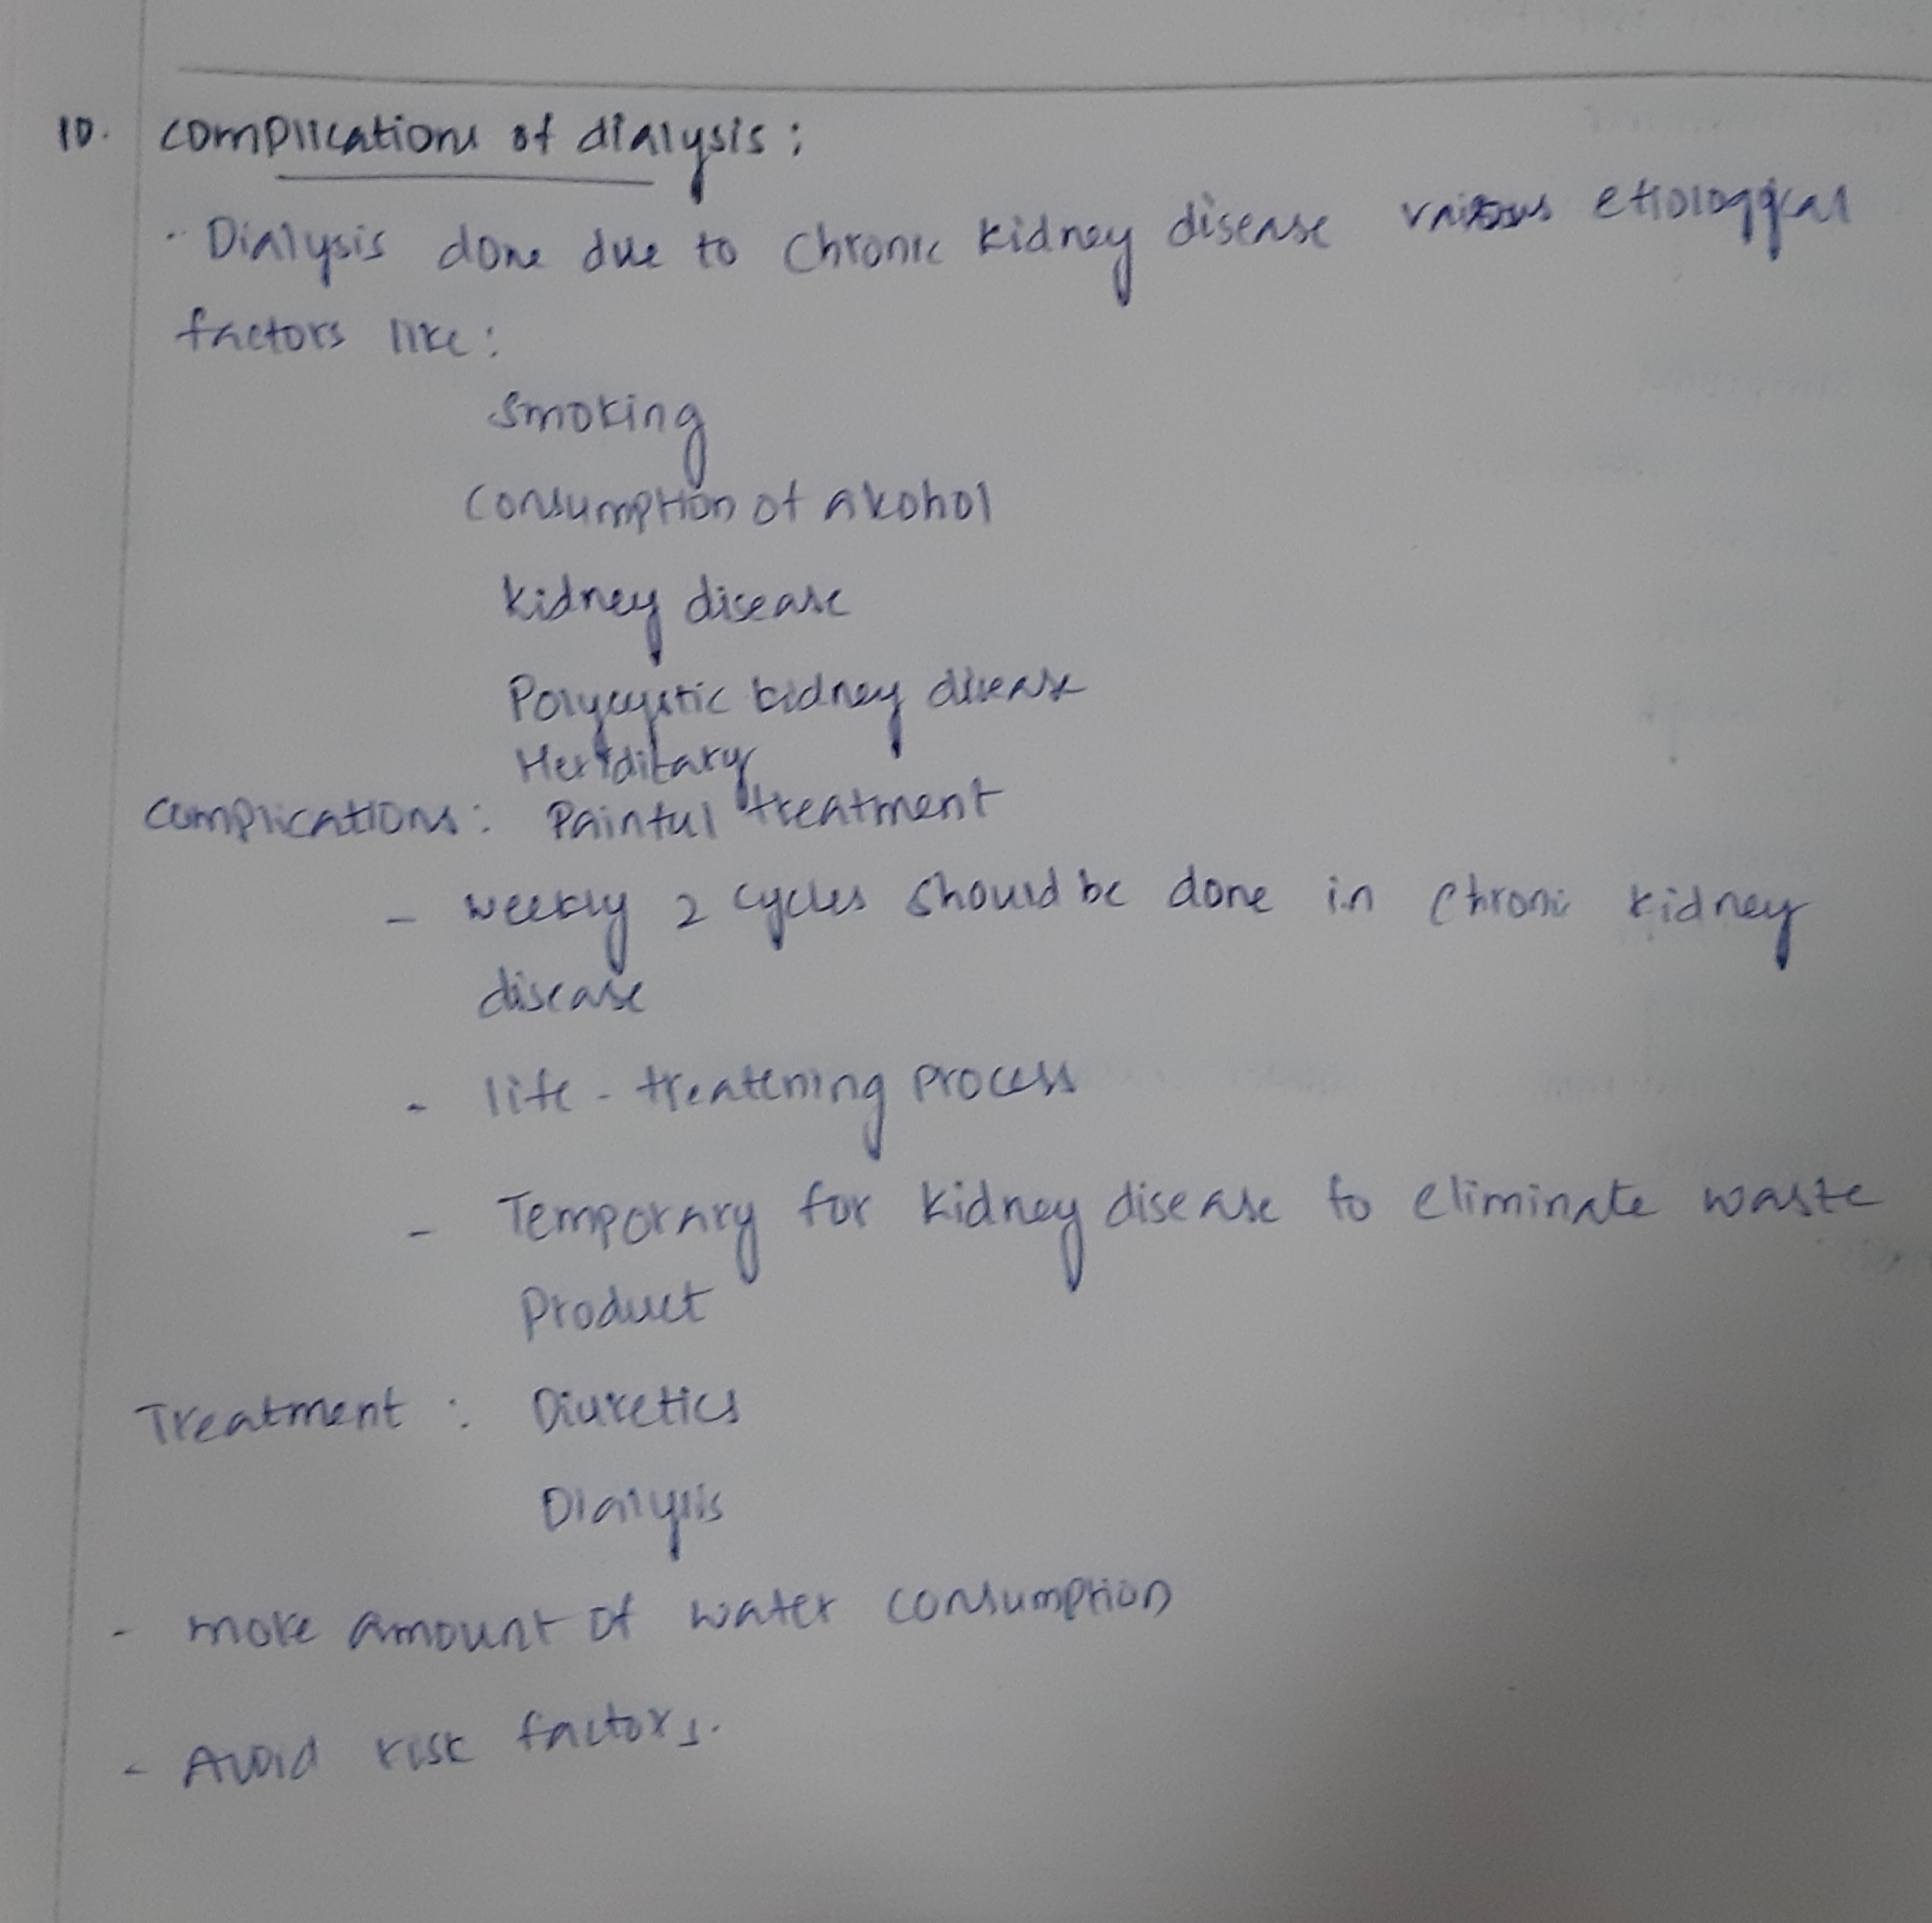 10. complications of dialysis :
- Dialysis done due to chronic kidney disease various etiological
factors like :
smoking
consumption of alcohol
kidney disease
Polycystic kidney disease
Heriditary
complications : Painful treatment
- weekly 2 cycles should be done in chronic kidney
disease
- life - treatening process
- Temporary for kidney disease to eliminate waste
product
Treatment : Diuretics
Dialysis
- more amount of water consumption
- Avoid risk factors.